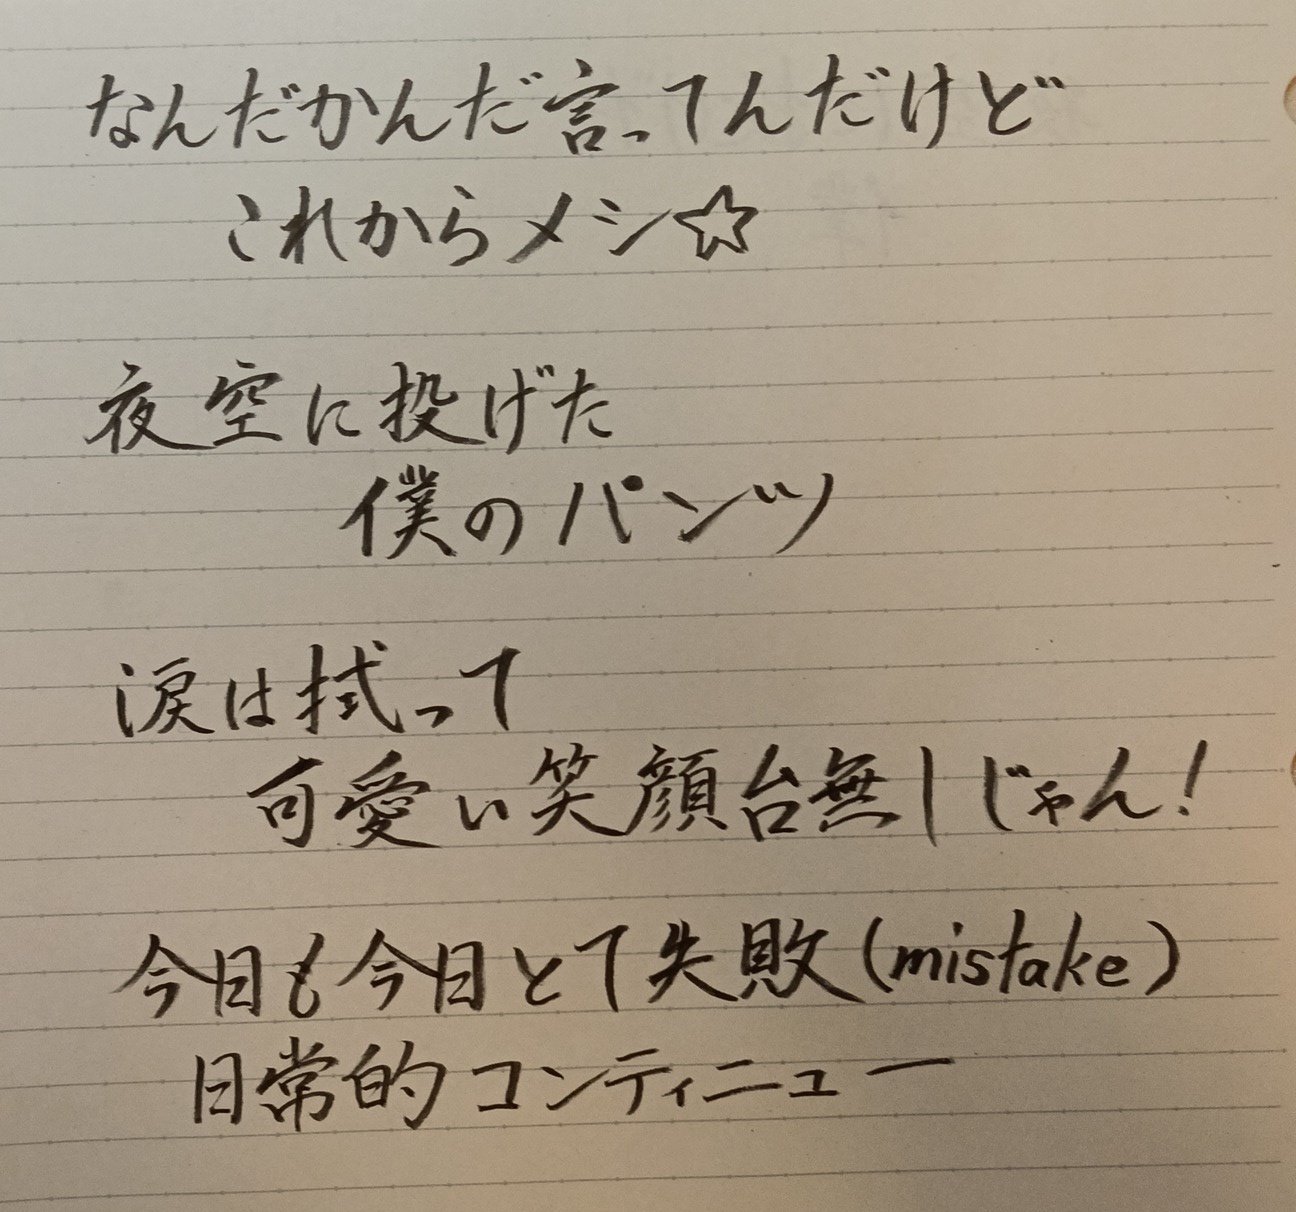 なんだかんだ言ってんだけど
これからメシ☆
夜空に投げた
僕のパンツ
涙は拭って
可愛い笑顔台無しじゃん!
今日も今日とて失敗(mistake)
日常的コンティニュー